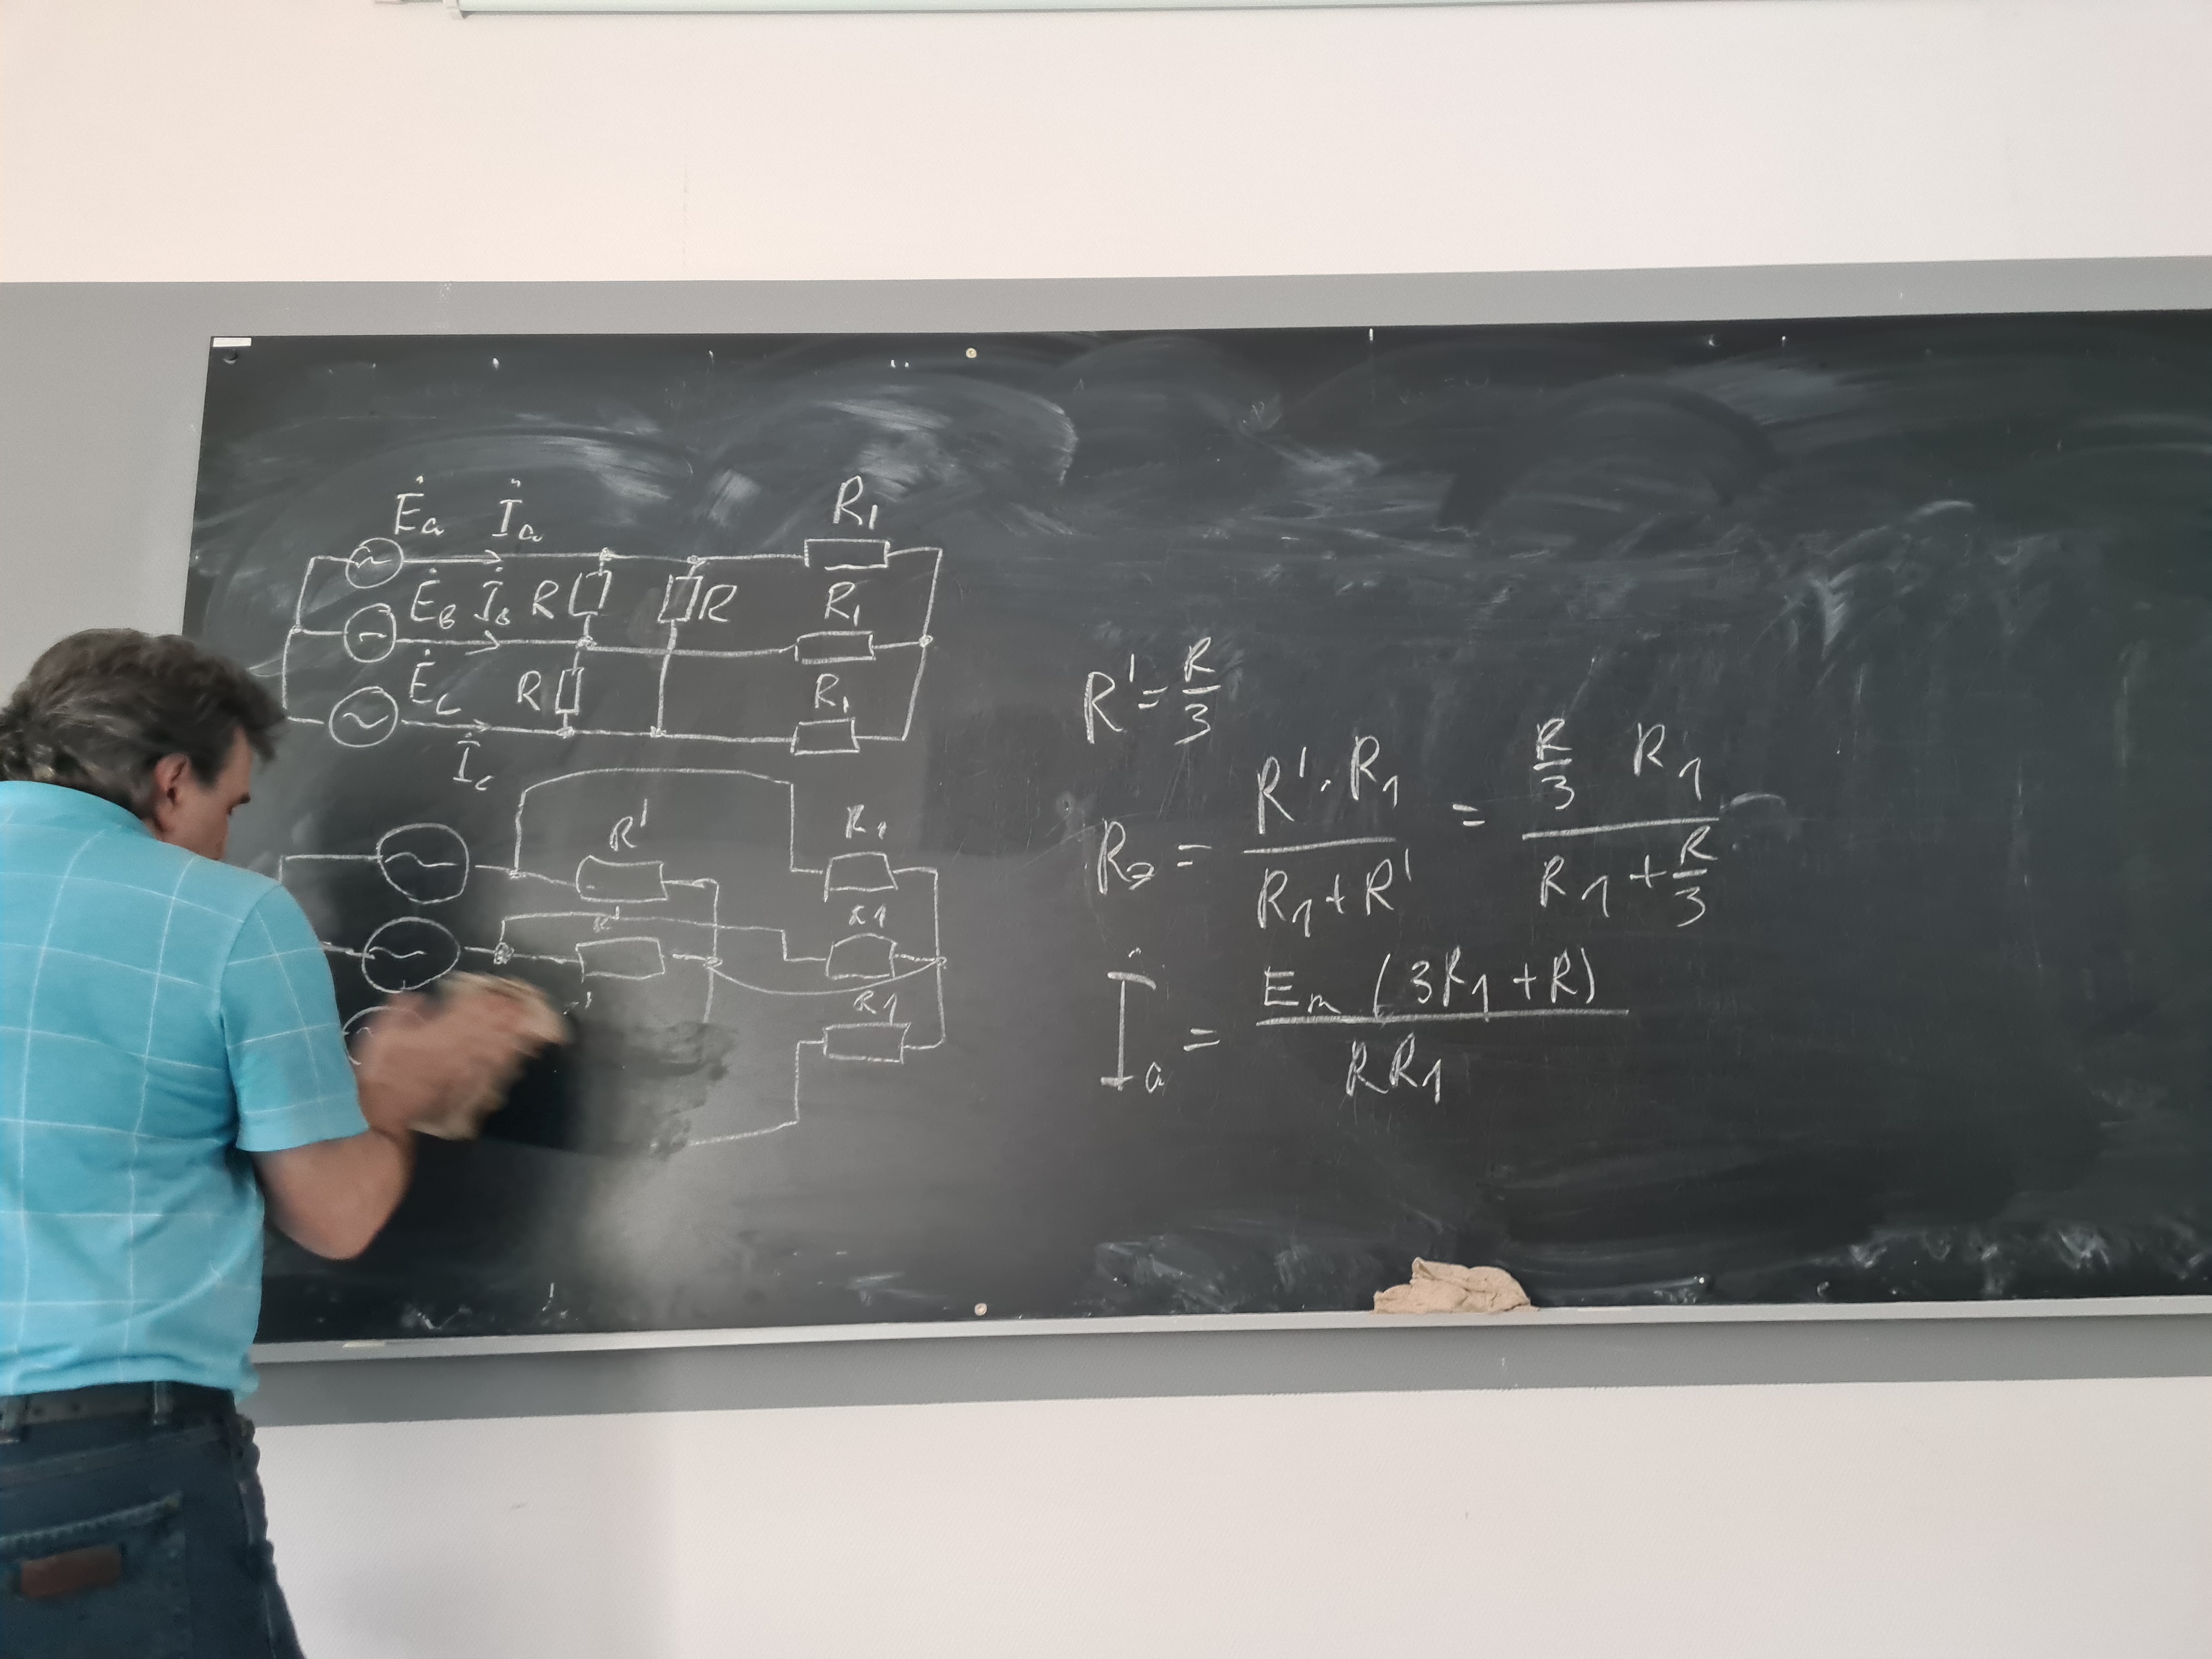 Ė_a İ_a R_1
Ė_B İ_B R R R_1
Ė_c R R_1
İ_c
R' R_1
R' R_1
R_1
R' = R/3
R_э = (R' · R_1)/(R_1 + R') = (R/3 R_1)/(R_1 + R/3)
İ_a = E_m (3R_1 + R)/(RR_1)